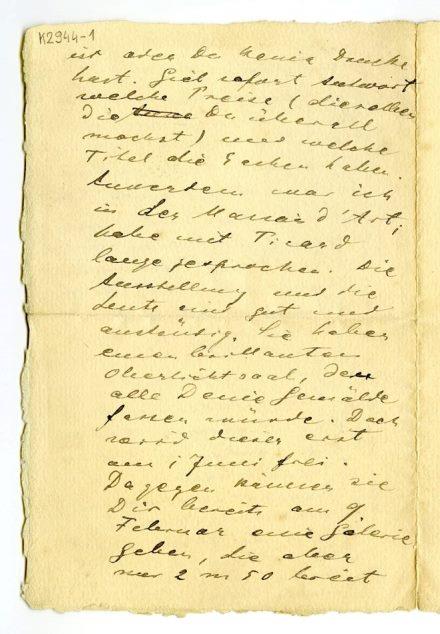 K2944-1
ist oder Du keine Drucke
hast. Gieb sofort Antwort
welche Preise (die vollen
die Du überall
machst) und welche
Titel die Sachen haben.
Ausserdem war ich
in der Maison d'Art,
habe mit Picard
lange gesprochen. Die
Ausstellung und die
Leute sind gut und
anständig. Sie haben
einen brillanten
Oberlichtsaal, der
alle Deine Gemälde
fassen würde. Doch
wird dieser erst
am 1 Juni frei.
Dagegen können sie
Dir bereits am 9
Februar eine Galerie
geben, die aber
nur 2 m 50 breit